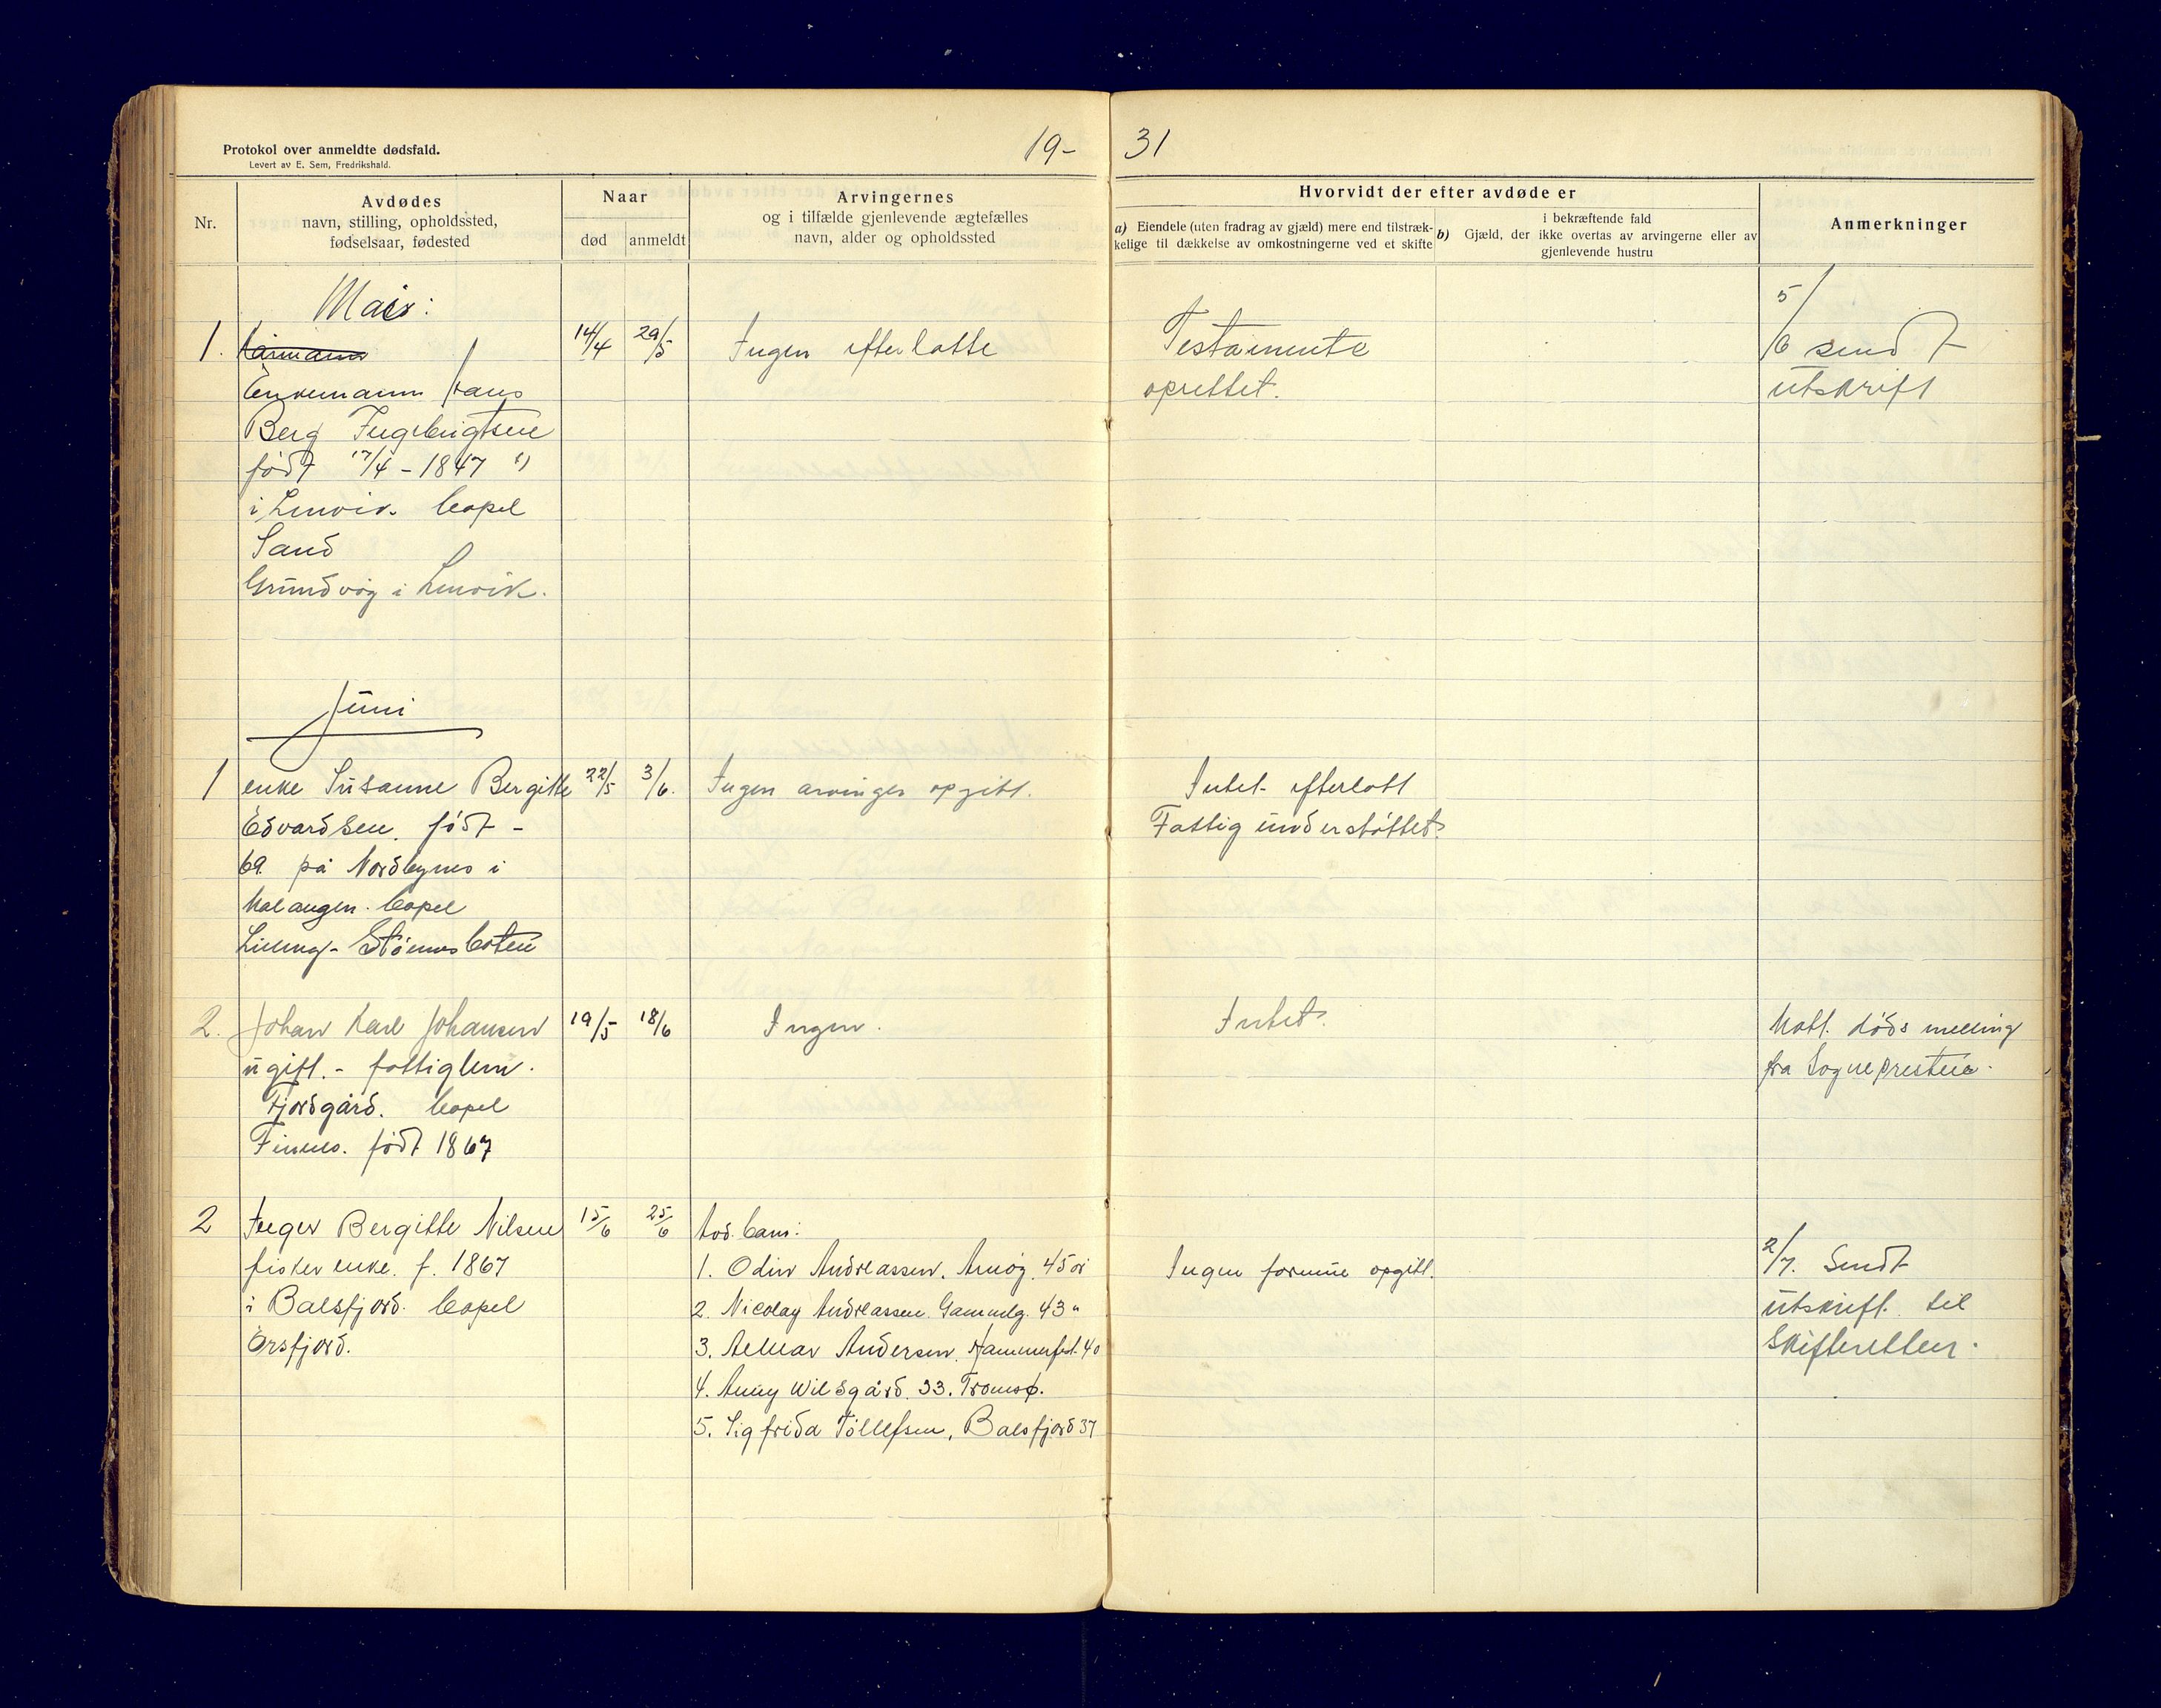 Protokol over anmeldte dødsfald.
Levert av E. Sem, Fredrikshald.
19-
31
Nr.
Avdødes
navn, stilling, opholdssted,
fødselsaar, fødested
Naar
død
anmeldt
Arvingernes
og i tilfælde gjenlevende ægtefælles
navn, alder og opholdssted
Hvorvidt der efter avdøde er
a) Eiendele (uten fradrag av gjæld) mere end tilstræk-
kelige til dækkelse av omkostningerne ved et skifte
i bekræftende fald
b) Gjæld, der ikke overtas av arvingerne eller av
gjenlevende hustru
Anmerkninger
Mai:
1. 14/4 29/5 Ingen efterlatte Testamente 5/6 sendt
Enkemann Hans oprettet. utskrift
Berg Ingebrigtsen
født 17/4 - 1847
i Lenvik. bopel
Sand
Grundvåg i Lenvik.
Juni
1 enke Susanne Bergitte 22/5 3/6. Ingen arvinger opgitt. Intet efterlatt
Edvardsen. født - Fattigunderstøttet.
69 på Nordbynes i
Malangen. bopel
Stønnesboten
2. Johan Karl Johansen 19/5 18/6 Ingen. Intet. Mott. dødsmelling
ugift. - fattiglem. fra Sognepresten.
Fjordgård. bopel
Finnes. født 1867
2 Inger Bergitte Nilsen 15/6 25/6 barn:
fisker enke. f. 1867 1. Odin Andreassen. 45 år Ingen formue opgitt. 2/7. Sendt
i Balsfjord. bopel 2. Nicolay Andreassen. Gammelg. 43 " utskrift til
Ørsfjord. 3. Andersen. Hammerfest. 40 Skifteretten.
4. Anny Wilsgård. 33. Tromsø.
5. Sigfrida Tollefsen, Balsfjord 37